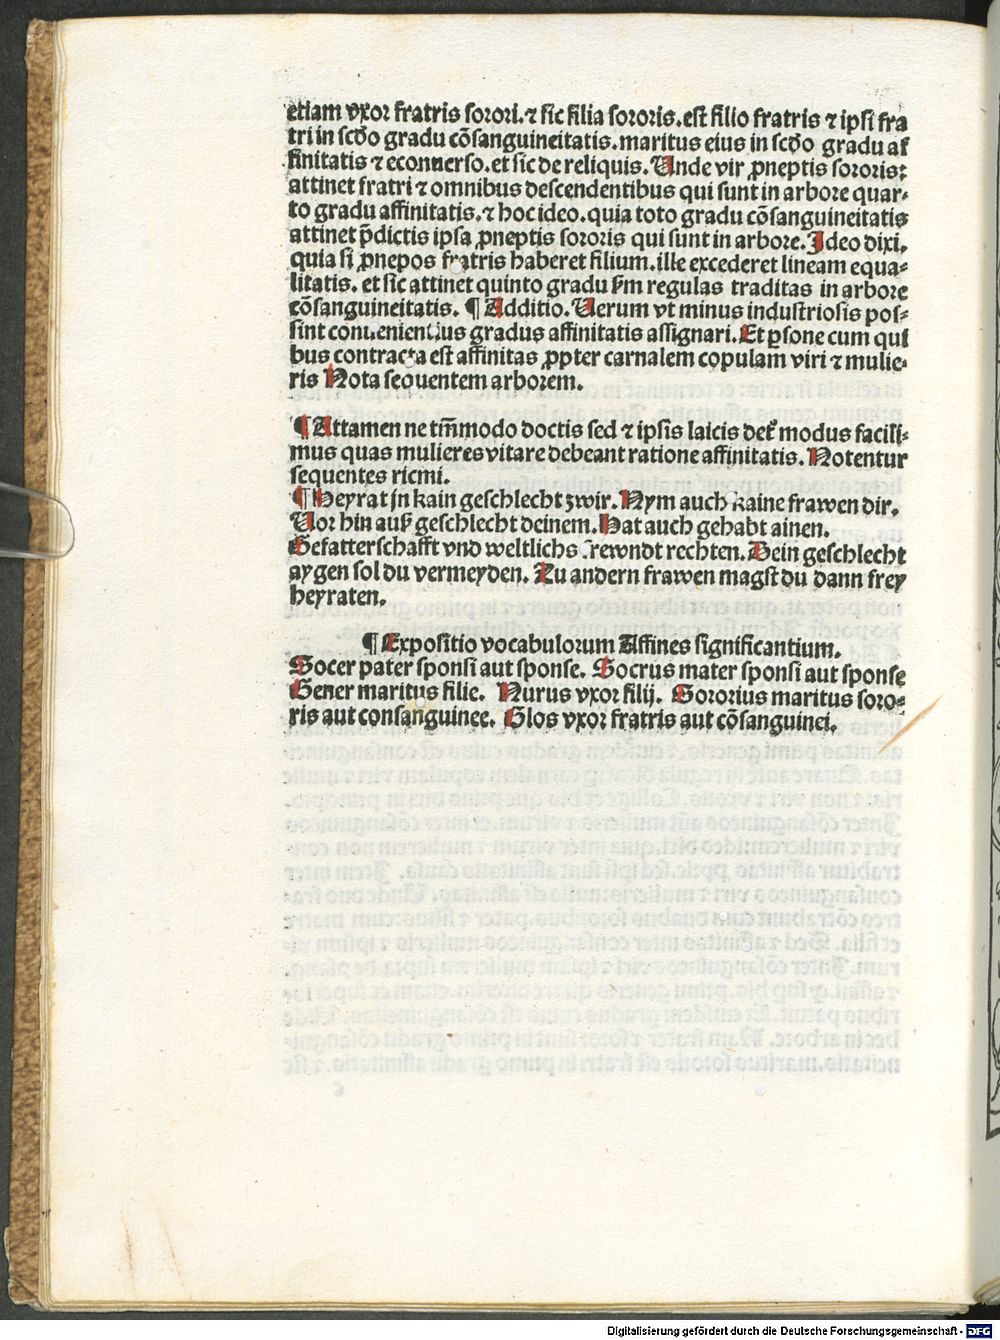 etiam vxor fratris sorori. ⁊ sic filia sororis. est filio fratris ⁊ ipsi fra
tri in scd̄o gradu cōsanguineitatis. maritus eius in scd̄o gradu af
finitatis ⁊ econuerso. et sic de reliquis. Unde vir ꝓneptis sororis:
attinet fratri ⁊ omnibus descendentibus qui sunt in arbore quar-
to gradu affinitatis. ⁊ hoc ideo. quia toto gradu cōsanguineitatis
attinet p̄dictis ipsa ꝓneptis sororis qui sunt in arbore. Ideo dixi.
quia si ꝓnepos fratris haberet filium. ille excederet lineam equa-
litatis. et sic attinet quinto gradu ẜm regulas traditas in arbore
cōsanguineitatis. ¶ Additio. Uerum vt minus industriosis pos-
sint conuenientius gradus affinitatis assignari. Et ꝑsone cum qui
bus contracta est affinitas ꝓpter carnalem copulam viri ⁊ mulie-
ris Nota sequentem arborem.
¶ Attamen ne tm̄modo doctis sed ⁊ ipsis laicis det̄ modus facili-
mus quas mulieres vitare debeant ratione affinitatis. Notentur
sequentes ricmi.
¶ Heyrat jn kain geschlecht zwir. Nym auch kaine frawen dir.
Uor hin auß geschlecht deinem. Hat auch gehabt ainen.
Gefatterschafft vnd weltlichs Frewndt rechten. Dein geschlecht
aygen sol du vermeyden. Zu andern frawen magst du dann frey
heyraten.
¶ Expositio vocabulorum Affines significantium.
Socer pater sponsi aut sponse. Socrus mater sponsi aut sponse
Gener maritus filie. Nurus vxor filij. Sororius maritus soro-
ris aut consanguinee. Glos vxor fratris aut cōsanguinei.
Digitalisierung gefördert durch die Deutsche Forschungsgemeinschaft - DFG